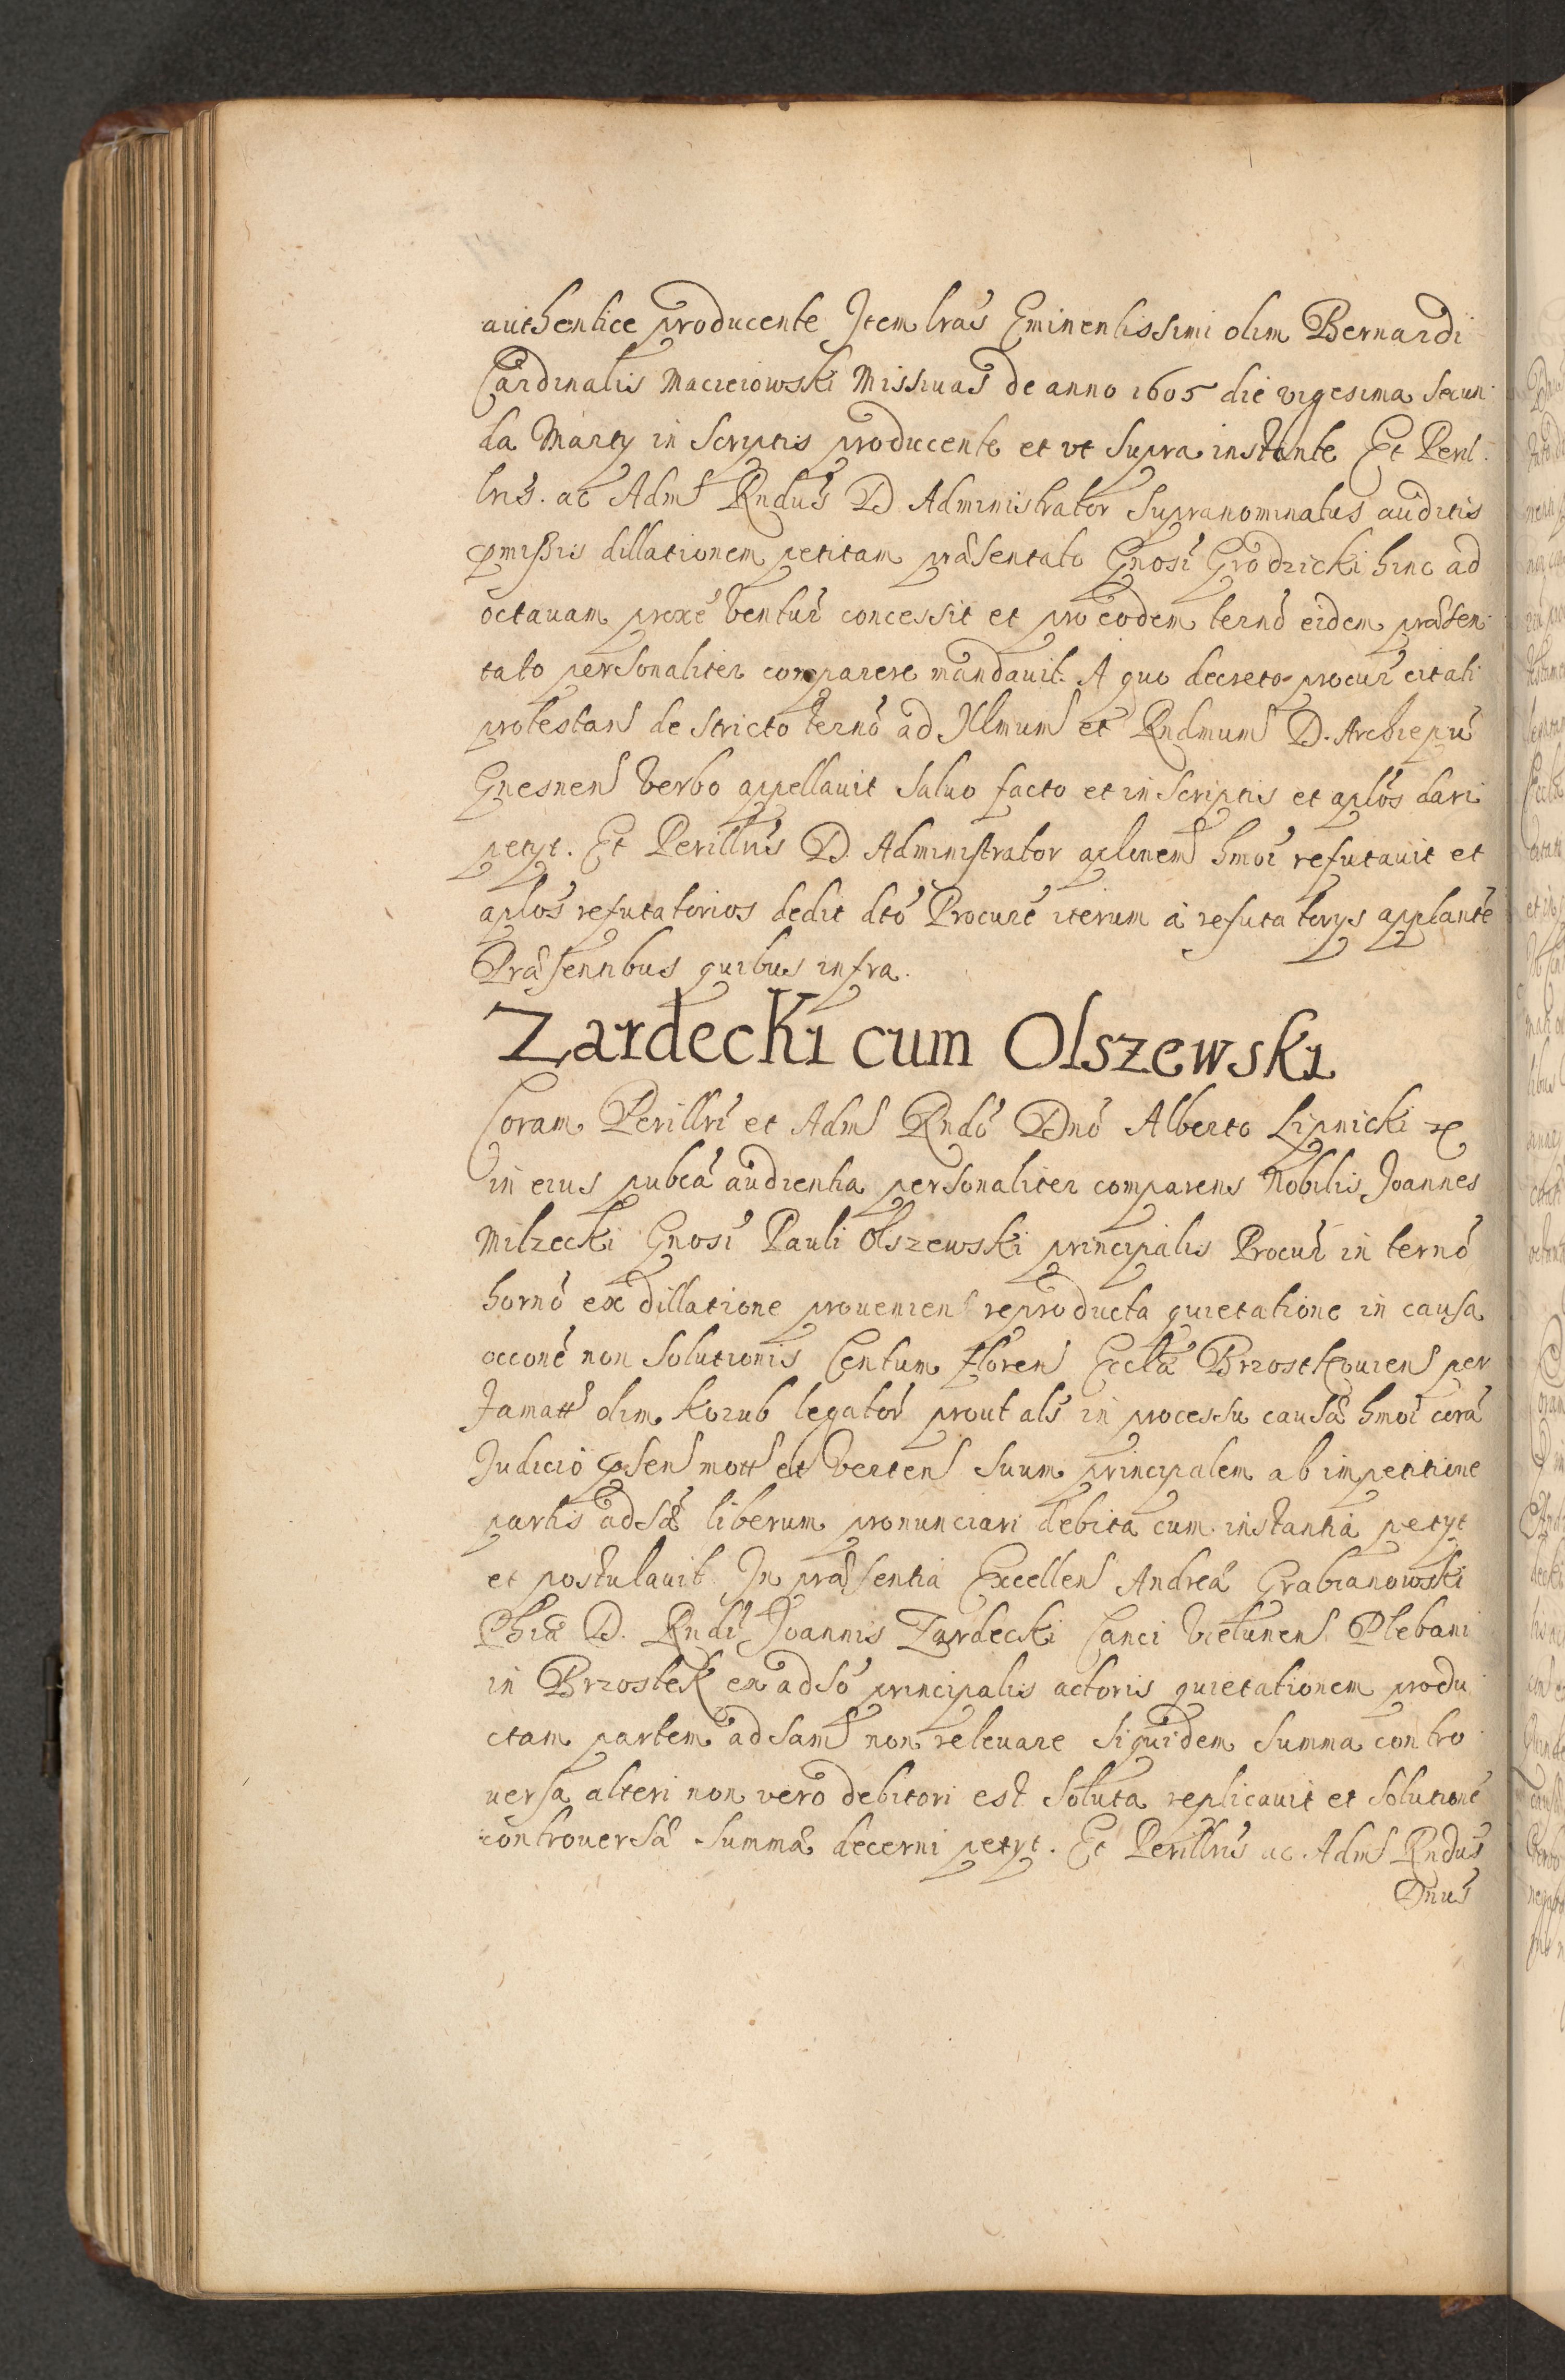 authentice producente Item lras Eminentissimi olim Bernardi
Cardinalis Macieiowski Missiuas de anno 1605 die vigesima secun
da Marty in Scriptis producente et vt supra instante Et Peril
lris. ac Adm Rndus D Administrator supranominatus auditis
pmissis dillationem petitam præsentato Gnosi Grodzicki hinc ad
octauam proxe ventur concessit et pro eodem termo eidem præsen
tato personaliter comparere mandauit. A quo decreto procur citati
protestans de stricto termo ad Illmum et Rndmum D. Archiepu
Gnesnens verbo appellauit saluo facto et in scriptis et aplos dari
petyt. Et Perillris D. Administrator aplonem hmoi refutauit et
aplos refutatorios dedit dto Procure iterum a refutatorys applante
Præsentibus quibus infra.
Zardecki cum Olszewski
Coram Perillri et Adm Rndo Dno Alberto Lipnicki
in eius pubca audientia personaliter comparens Nobilis Joannes
Milzecki Gnosi Pauli Olszewski principalis Procur in termo
horno ex dillatione prouenien reproducta quietatione in causa
occone non solutionis Centum floren Eccla Brzostkouien per
Famatt olim Kozub legator prout als in processu causæ hmoi cora
Judicio psen mott et verten suum principalem ab impetitione
partis adsæ liberum pronunciari debita cum instantia petyt
et postulauit In præsentia Excellen Andreæ Grabianowski
Phiæ D. Rndi Joannis Zardecki Canci Vielunen Plebani
in Brzostek ex adso principalis actoris quietationem produ
ctam partem adsam non releuare siquidem summa contro
uersa alteri non vero debitori est soluta replicauit et solutione
controuersæ summæ decerni petyt. Et Perillris ac Adm Rndus
Dnus